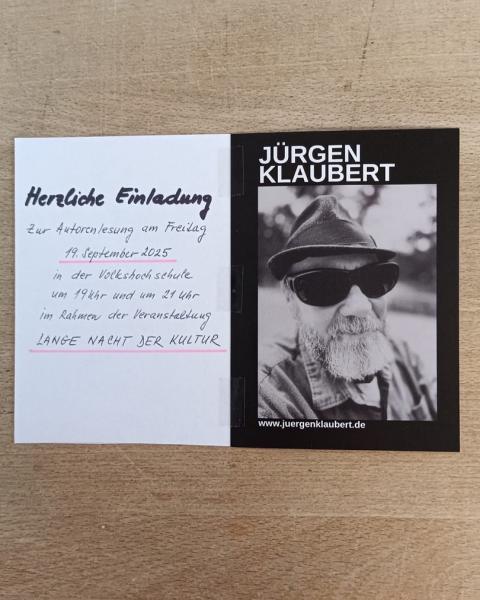 Herzliche Einladung
zur Autorenlesung am Freitag
19. September 2025
in der Volkshochschule
um 19 Uhr und um 21 Uhr
im Rahmen der Veranstaltung
LANGE NACHT DER KULTUR
JÜRGEN
KLAUBERT
www.juergenklaubert.de